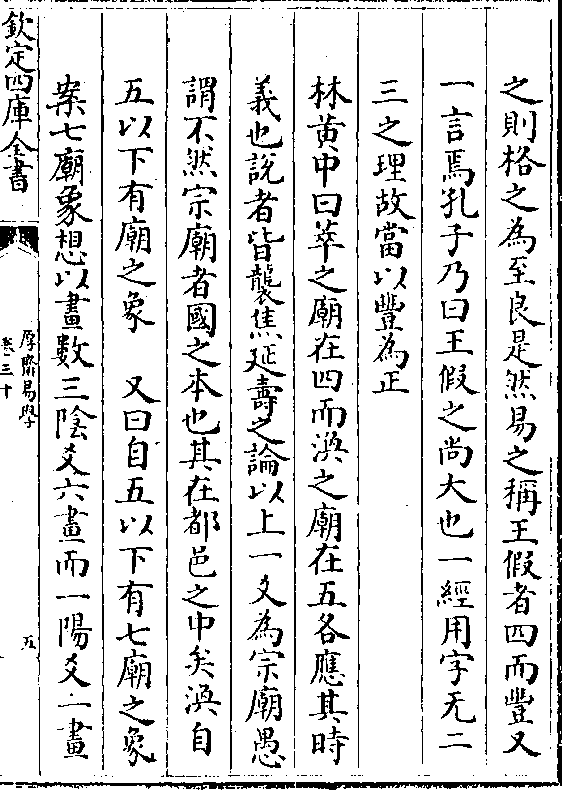 之則格之為至良是然易之稱王假者四而豐又
一言焉孔子乃曰王假之尚大也一經用字无二
三之理故當以豐為正
林黄中曰萃之廟在四而渙之廟在五各應其時
義也說者皆襲焦延壽之論以上一爻為宗廟愚
謂不然宗廟者國之本也其在都邑之中矣渙自
五以下有廟之象　又曰自五以下有七廟之象
案七廟象想以畫數三陰爻六畫而一陽爻一畫
欽定四庫全書
厚齋易學
卷三十
五